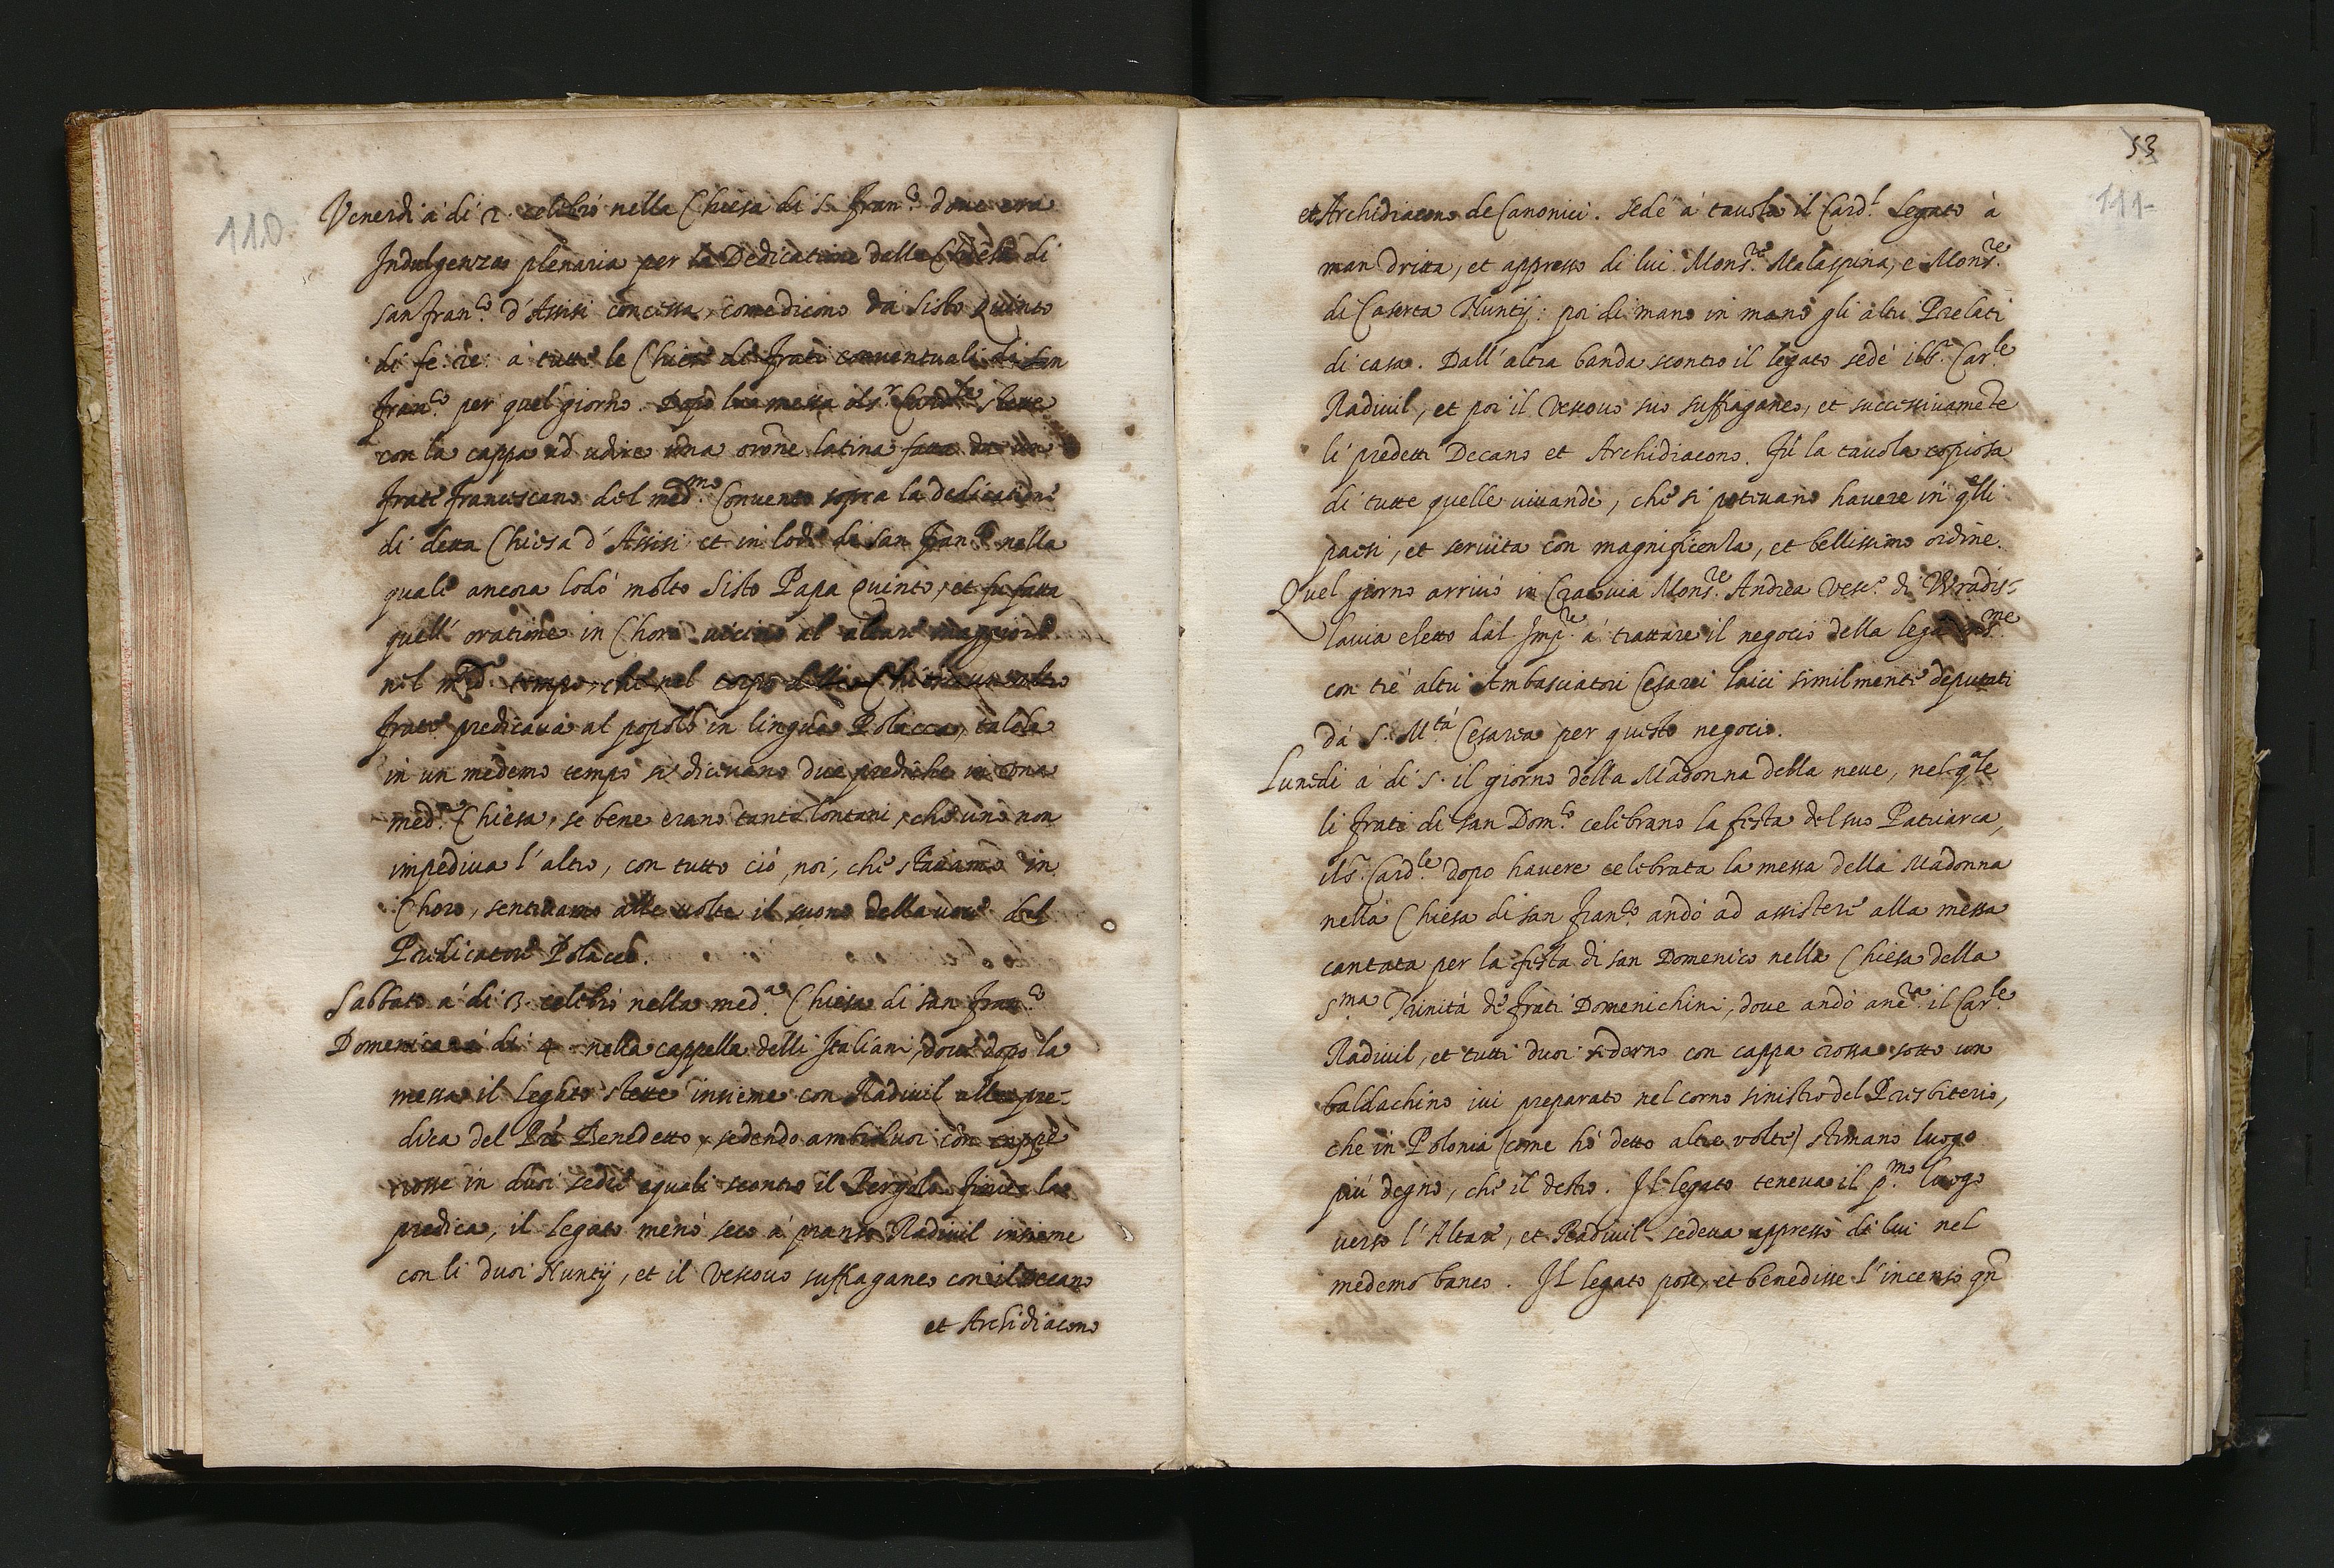 110
Venerdi à di 2. celebrò nella Chiesa di S. Fran.co doue era
Indulgenza plenaria per la Dedicatione della Chiesa di
san fran.co d'Assisi concessa, come dicono da Sisto Quinto
di fe: re: a tutte le Chiese de frati conuentuali di san
fran.co per quel giorno. Dopò la messa il s.r Card.le stette
con la cappa ad udire una orõne latina fatta da un
frate franciscano del med.mo Conuento sopra la dedicatione
di detta Chiesa d'Assisi et in lode di san fran.co nella
quale ancora lodò molto Sisto Papa Quinto, et fu fatta
quell'oratione in Choro uicino al altare maggiore
nel med.o tempo, che nel corpo della Chiesa un altro
frate predicaua al popolo in lingua Polacca, talche
in un medemo tempo si diceuano due prediche in una
med.a Chiesa, se bene erano tanto lontani, che uno non
impediua l'altro, con tutto ciò, noi, che stauamo in
Choro, sentiuamo alle uolte il suono della uoce del
Predicatore Polacco.
Sabbato à di 3. celebrò nella med.a Chiesa di san fran.co
Domenica à di 4 nella cappella delli Italiani, doue dopo la
messa il Legato stette insieme con Radiuil alla pre-
dica del Prê Benedetto, sedendo ambiduoi con cappe
rosse in duoi sedie equali scontro il Pergolo. Finita la
predica, il Legato menò seco à pranso Radiuil insieme
con li duoi Nuntij, et il Vescouo suffraganeo con il Decano
et Archidiacono
53
111
et Archidiacono de Canonici. Sedè à tauola il Card.l Legato à
man dritta, et appresso di lui Mons.re Malaspina, e Mons.re
di Caserta Nuntij: poi di mano in mano gli altri Prelati
di casa. Dall'altra banda scontro il legato sedè ils.r Car.le
Radiuil, et poi il Vescouo suo suffraganeo, et successiuamẽte
li predetti Decano et Archidiacono. Fù la tauola copiosa
di tutte quelle uiuande, che si poteuano hauere in q̃lli
paesi, et seruita con magnificenza, et bellissimo ordine.
Quel giorno arriuò in Cracouia Mons.re Andrea Vesc.o di Wradis-
lauia eletto dal Imp.re à trattare il negocio della lega ins.me
con trè altri Ambasciatori Cesarei laici similmente deputati
dà S. M.tà Cesarea per questo negocio.
Lunedi à di 5. il giorno della Madonna della neue, nel q.ale
li frati di san Dom.co celebrano la festa del suo Patriarca,
ils.r Card.le dopo hauere celebrata la messa della Madonna
nella Chiesa di san fran.co andò ad assistere alla messa
cantata per la festa di san Domenico nella Chiesa della
S.ma Trinità de frati Domenichini, doue andò anc.ra il Car.le
Radiuil, et tutti duoi sederno con cappa rossa sotto un
baldachino iui preparato nel corno sinistro del Presbiterio,
che in Polonia (come hò detto altre volte) stimano luogo
più degno, che il destro. Il legato teneua il p.mo luogo
uerso l'Altare, et Radiuil sedeua appresso di lui nel
medemo banco. Il legato pose, et benedisse l'incenso qñ